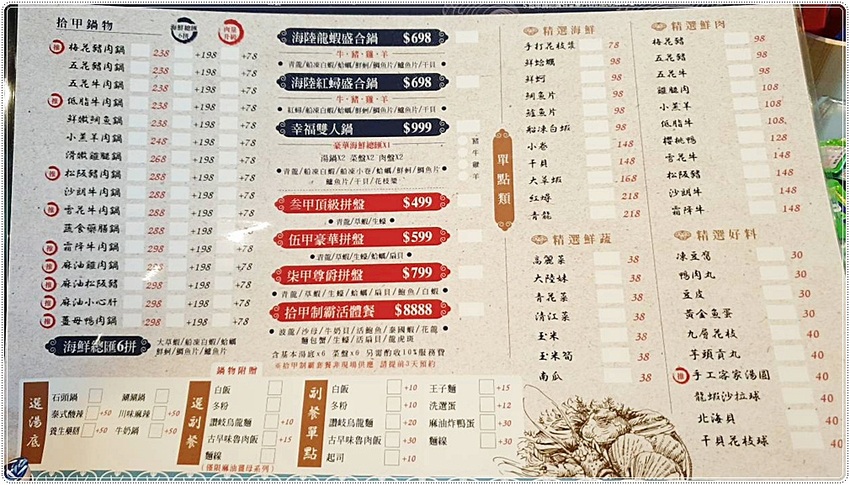 拾甲鍋物
海鮮總匯6拼
肉量升級
推 梅花豬肉鍋 238 +198 +78
五花豬肉鍋 238 +198 +78
五花牛肉鍋 238 +198 +78
推 低脂牛肉鍋 238 +198 +78
鮮嫩鯛魚鍋 238 +198 +78
小羔羊肉鍋 248 +198 +78
滑嫩雞腿鍋 268 +198 +78
推 松阪豬肉鍋 288 +198 +78
沙朗牛肉鍋 288 +198 +78
推 雪花牛肉鍋 288 +198 +78
蔬食藥膳鍋 288 +198 +78
推 霜降牛肉鍋 298 +198 +78
推 麻油雞肉鍋 298 +198 +78
推 麻油松阪豬 298 +198 +78
推 麻油小心肝 298 +198 +78
推 薑母鴨肉鍋 298 +198 +78
海鮮總匯6拼
大草蝦/船凍白蝦/蛤蠣
鮮蚵/鯛魚片/鱸魚片
海陸龍蝦盛合鍋 $698
牛・豬・雞・羊
青龍/船凍白蝦/蛤蠣/鮮蚵/鯛魚片/鱸魚片/干貝
海陸紅蟳盛合鍋 $698
牛・豬・雞・羊
紅蟳/船凍白蝦/蛤蠣/鮮蚵/鯛魚片/鱸魚片/干貝
幸福雙人鍋 $999
豪華海鮮總匯X1
湯鍋X2 菜盤X2 肉盤X2
青龍/船凍白蝦/船凍小卷/蛤蠣/鮮蚵/鯛魚片
鱸魚片/干貝/花枝漿
豬
牛
雞
羊
叁甲頂級拼盤 $499
青龍/草蝦/生蠔
伍甲豪華拼盤 $599
青龍/草蝦/生蠔/蛤蠣/扇貝
柒甲尊爵拼盤 $799
青龍/草蝦/生蠔/蛤蠣/扇貝/鮑魚/白蝦
拾甲制霸活體餐 $8888
波龍/沙母/牛奶貝/活鮑魚/泰國蝦/花龍
麵包蟹/生蠔/活扇貝/龍虎斑
含基本湯底x6 菜盤x6 另需酌收10%服務費
※拾甲制霸套餐非現場供應 請提前3天預約
單點類
精選海鮮
手打花枝漿 78
鮮蛤蠣 98
鮮蚵 98
鯛魚片 98
鱸魚片 98
船凍白蝦 98
小卷 148
干貝 148
大草蝦 168
紅蟳 218
青龍 218
精選鮮蔬
高麗菜 38
大陸妹 38
青花菜 38
清江菜 38
玉米 38
玉米筍 38
南瓜 38
精選鮮肉
梅花豬 98
五花豬 98
五花牛 98
雞腿肉 108
小羔羊 108
低脂牛 108
櫻桃鴨 128
雪花牛 148
松阪豬 148
沙朗牛 148
霜降牛 148
精選好料
凍豆腐 30
鴨肉丸 30
豆皮 30
黃金魚蛋 30
九層花枝 40
芋頭貢丸 40
推 手工客家湯圓 40
龍蝦沙拉球 40
北海貝 40
干貝花枝球 40
選湯底
石頭鍋
泰式酸辣 +50
養生藥膳 +50
涮涮鍋
川味麻辣 +50
牛奶鍋 +50
鍋物附贈
選副餐
白飯
冬粉
讚岐烏龍麵 +10
古早味魯肉飯 +15
麵線
(僅限麻油薑母系列)
副餐單點
白飯 +10
冬粉 +10
讚岐烏龍麵 +20
古早味魯肉飯 +30
起司 +10
王子麵 +15
洗選蛋 +12
麻油炸鴨蛋 +30
麵線 +30